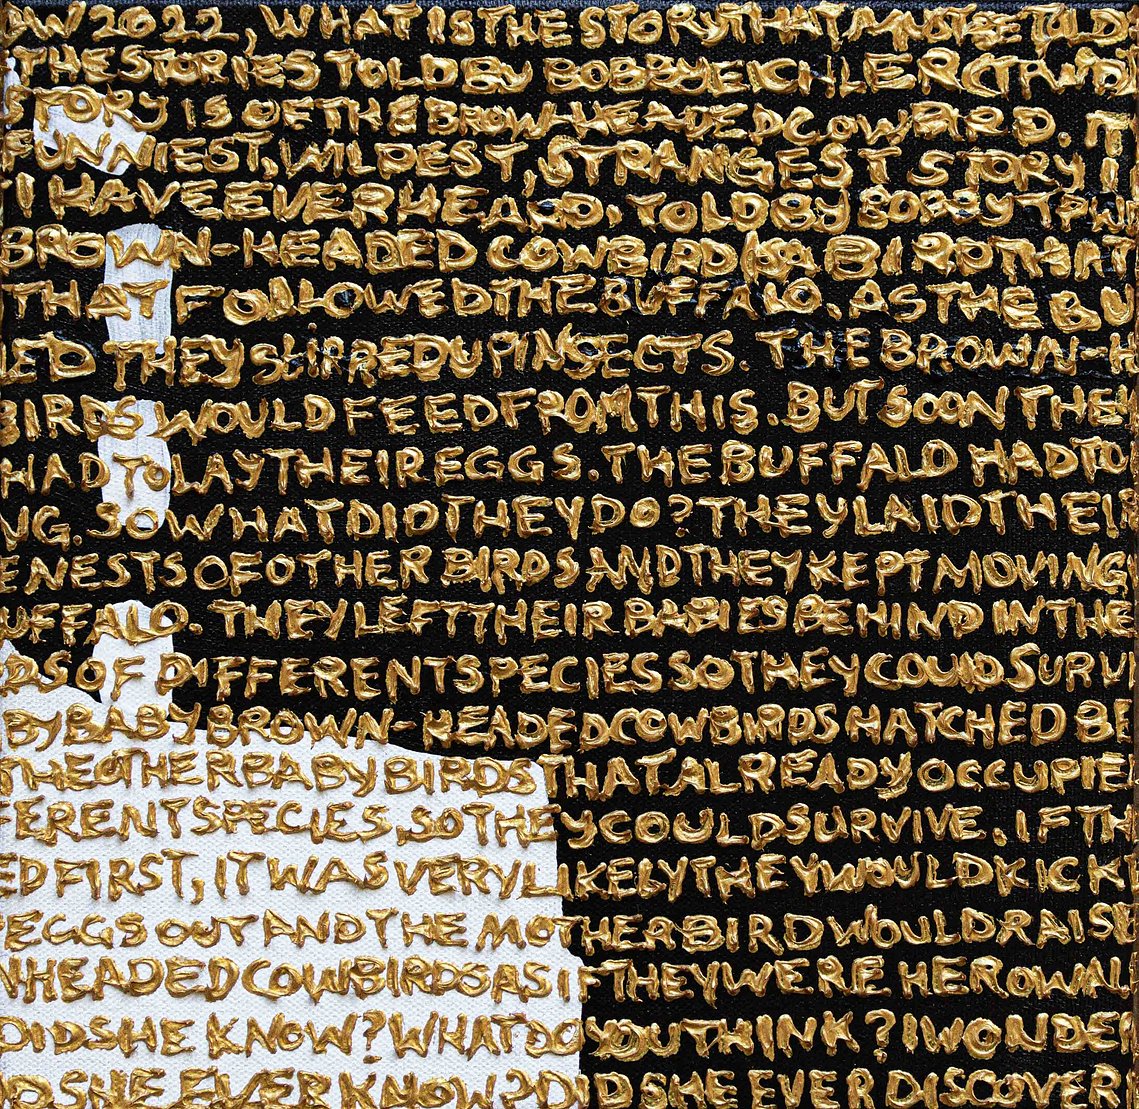 AW 2022, WHAT IS THE STORY THAT MUST BE TOLD
THE STORIES TOLD BY BOBBY EICHLER (TPWD)
STORY IS OF THE BROWN-HEADED COWBIRD. IT
FUNNIEST, WILDEST, STRANGEST STORY I
I HAVE EVER HEARD. TOLD BY BOBBY TPW
BROWN-HEADED COWBIRD IS A BIRD THAT
THAT FOLLOWED THE BUFFALO. AS THE BU
ED THEY STIRRED UP INSECTS. THE BROWN-H
BIRDS WOULD FEED FROM THIS. BUT SOON THEY
HAD TO LAY THEIR EGGS. THE BUFFALO HAD TO
NG. SO WHAT DID THEY DO? THEY LAID THEIR
E NESTS OF OTHER BIRDS AND THEY KEPT MOVING
UFFALO. THEY LEFT THEIR BABIES BEHIND IN THE
DS OF DIFFERENT SPECIES SO THEY COULD SURVI
BY BABY BROWN-HEADED COWBIRDS HATCHED BE
THE OTHER BABY BIRDS THAT ALREADY OCCUPIE
FERENT SPECIES SO THEY COULD SURVIVE. IF TH
ED FIRST, IT WAS VERY LIKELY THEY WOULD KICK
EGGS OUT AND THE MOTHER BIRD WOULD RAISE
NHEADED COWBIRDS AS IF THEY WERE HER OWN.
DID SHE KNOW? WHAT DO YOU THINK? I WONDER
ID SHE EVER KNOW? DID SHE EVER DISCOVER